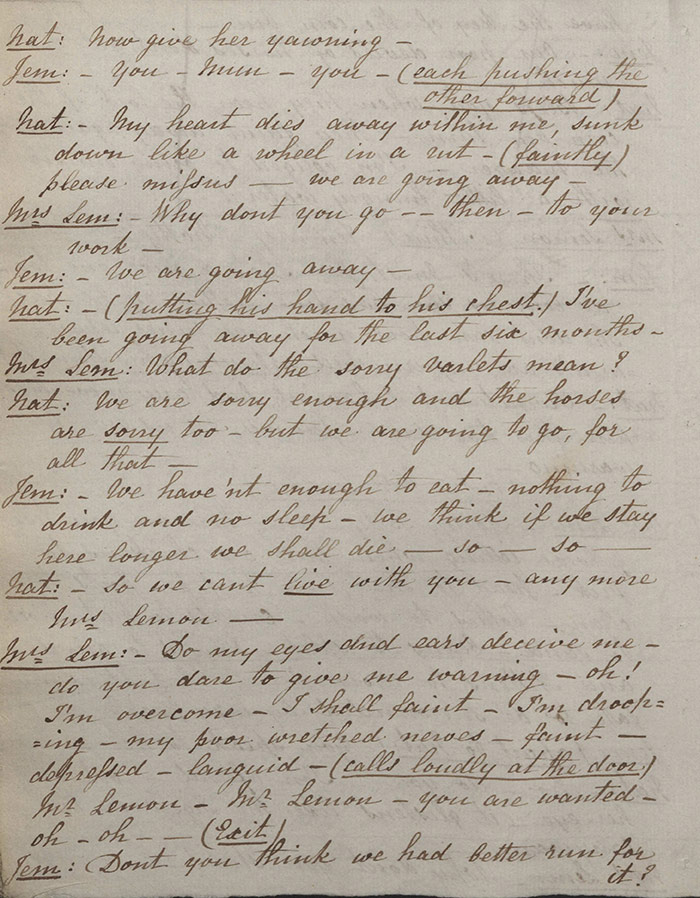 Nat: Now give her yawning —
Jem: - You - Mum - you - (each pushing the
other forward)
Nat: - My heart dies away within me, sunk
down like a wheel in a rut - (faintly)
please missus — we are going away —
Mrs Lem: - Why dont you go -- then - to your
work —
Jem: - We are going away —
Nat: - (putting his hand to his chest.) I've
been going away for the last six months -
Mrs Lem: What do the sorry varlets mean?
Nat: We are sorry enough and the horses
are sorry too - but we are going to go, for
all that —
Jem: - We have'nt enough to eat - nothing to
drink and no sleep - we think if we stay
here longer we shall die — so — so —
Nat: - So we cant live with you - any more
Mrs Lemon —
Mrs Lem: - Do my eyes and ears deceive me -
do you dare to give me warning - oh!
I'm overcome - I shall faint - I'm droop=
=ing - my poor wretched nerves - faint —
depressed - languid - (calls loudly at the door)
Mr Lemon - Mr Lemon - you are wanted -
oh - oh - — (Exit)
Jem: Dont you think we had better run for
it?